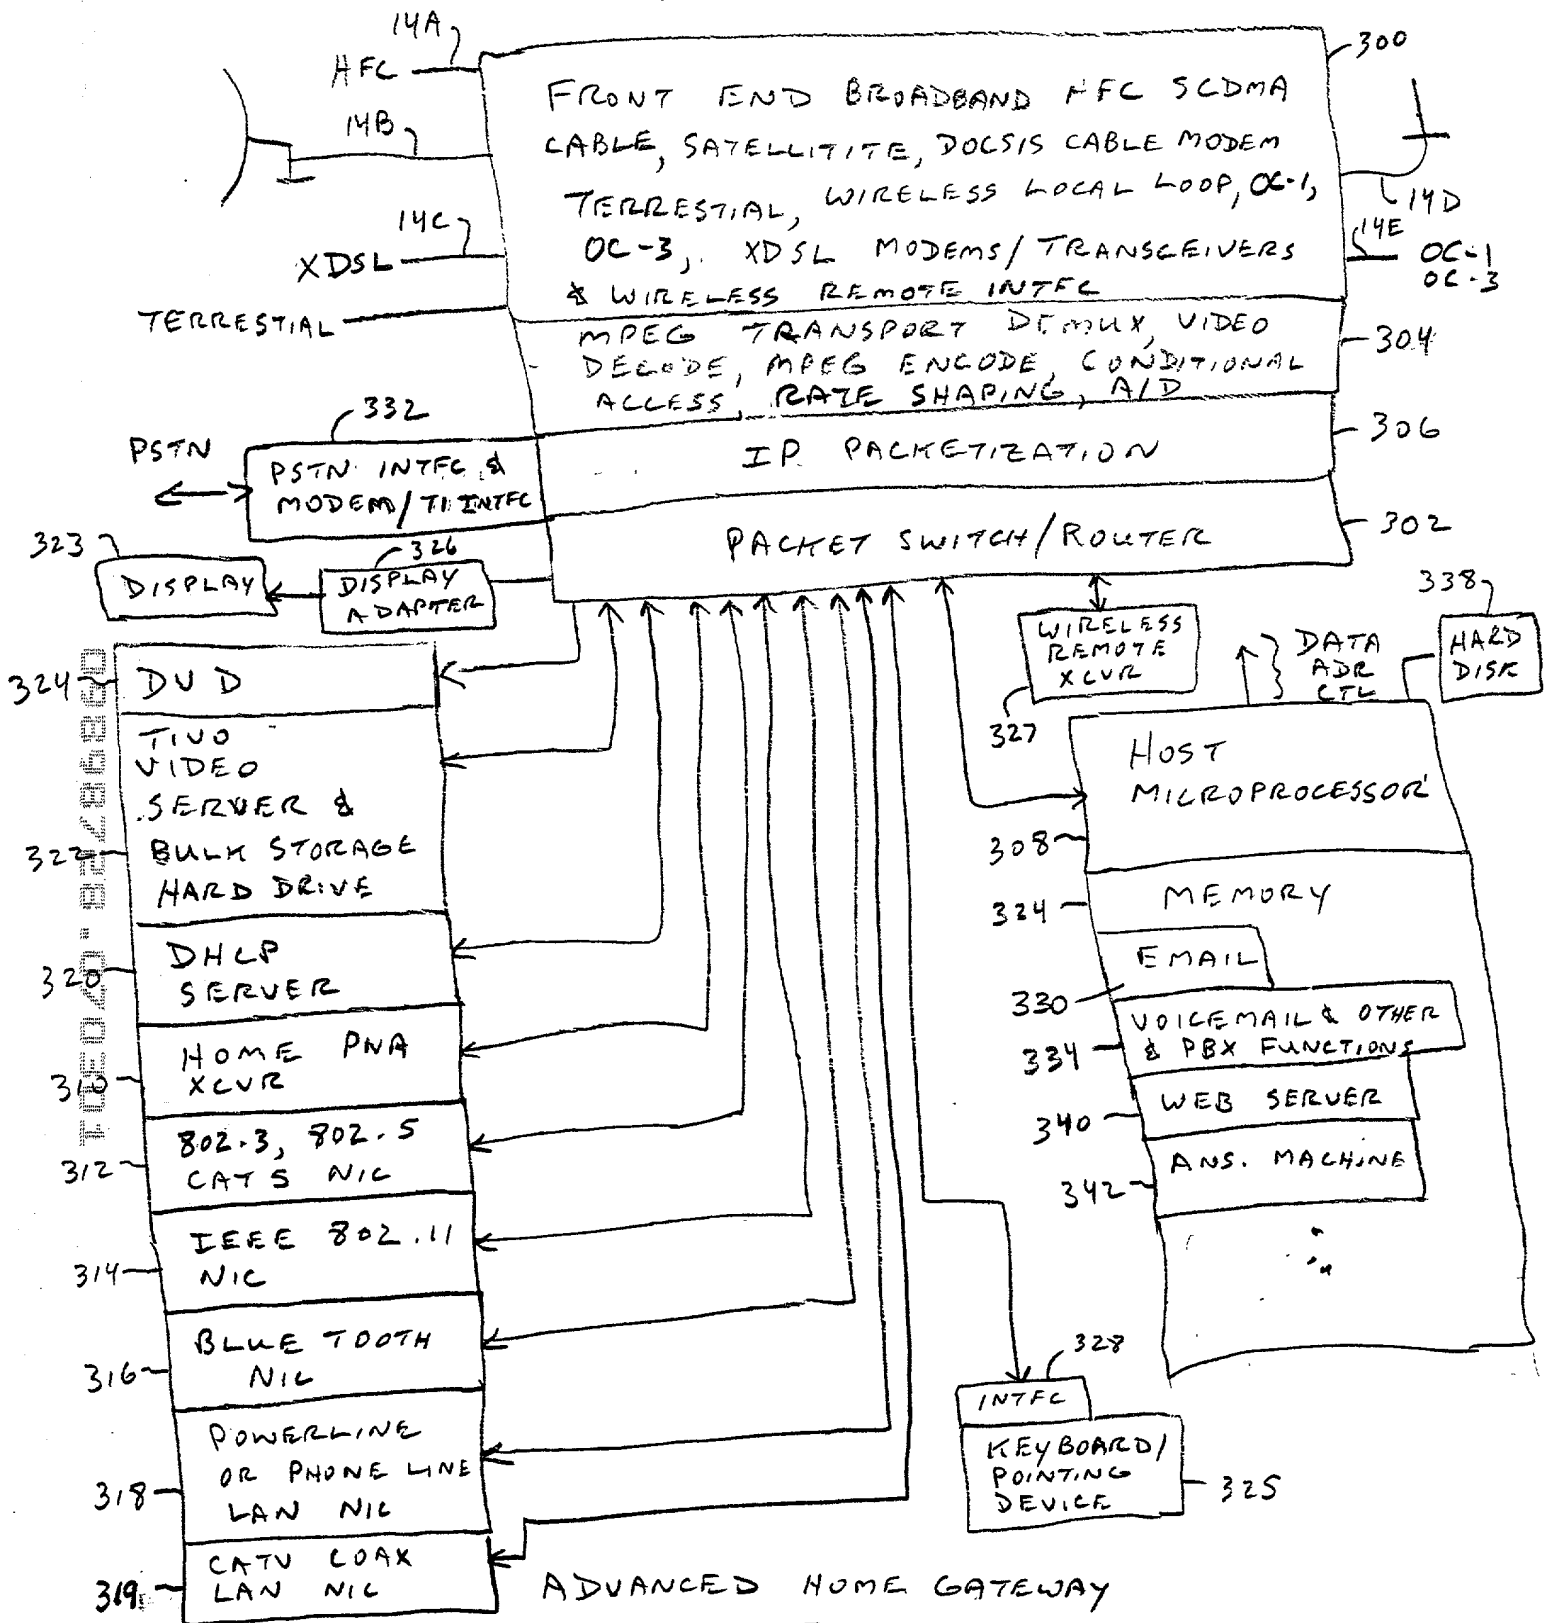 14A
HFC
300
FRONT END BROADBAND HFC SCDMA
CABLE, SATELLITITE, DOCSIS CABLE MODEM
TERRESTIAL, WIRELESS LOCAL LOOP, OC-1,
OC-3, XDSL MODEMS/TRANSCEIVERS
& WIRELESS REMOTE INTFC
14B
14C
XDSL
TERRESTIAL
14D
14E
OC-1
OC-3
MPEG TRANSPORT DEMUX, VIDEO
DECODE, MPEG ENCODE, CONDITIONAL
ACCESS, RATE SHAPING, A/D
304
332
PSTN
PSTN INTFC &
MODEM/T1 INTFC
IP PACKETIZATION
306
PACKET SWITCH/ROUTER
302
323
DISPLAY
326
DISPLAY
ADAPTER
WIRELESS
REMOTE
XCVR
327
DATA
ADR
CTL
338
HARD
DISK
324
DVD
TIVO
VIDEO
SERVER &
BULK STORAGE
HARD DRIVE
322
DHCP
SERVER
320
HOME PNA
XCVR
310
802.3, 802.5
CAT 5 NIC
312
IEEE 802.11
NIC
314
BLUE TOOTH
NIC
316
POWERLINE
OR PHONE LINE
LAN NIC
318
CATV COAX
LAN NIC
319
HOST
MICROPROCESSOR
308
MEMORY
324
EMAIL
330
VOICEMAIL & OTHER
& PBX FUNCTIONS
334
WEB SERVER
340
ANS. MACHINE
342
328
INTFC
KEYBOARD/
POINTING
DEVICE
325
ADVANCED HOME GATEWAY